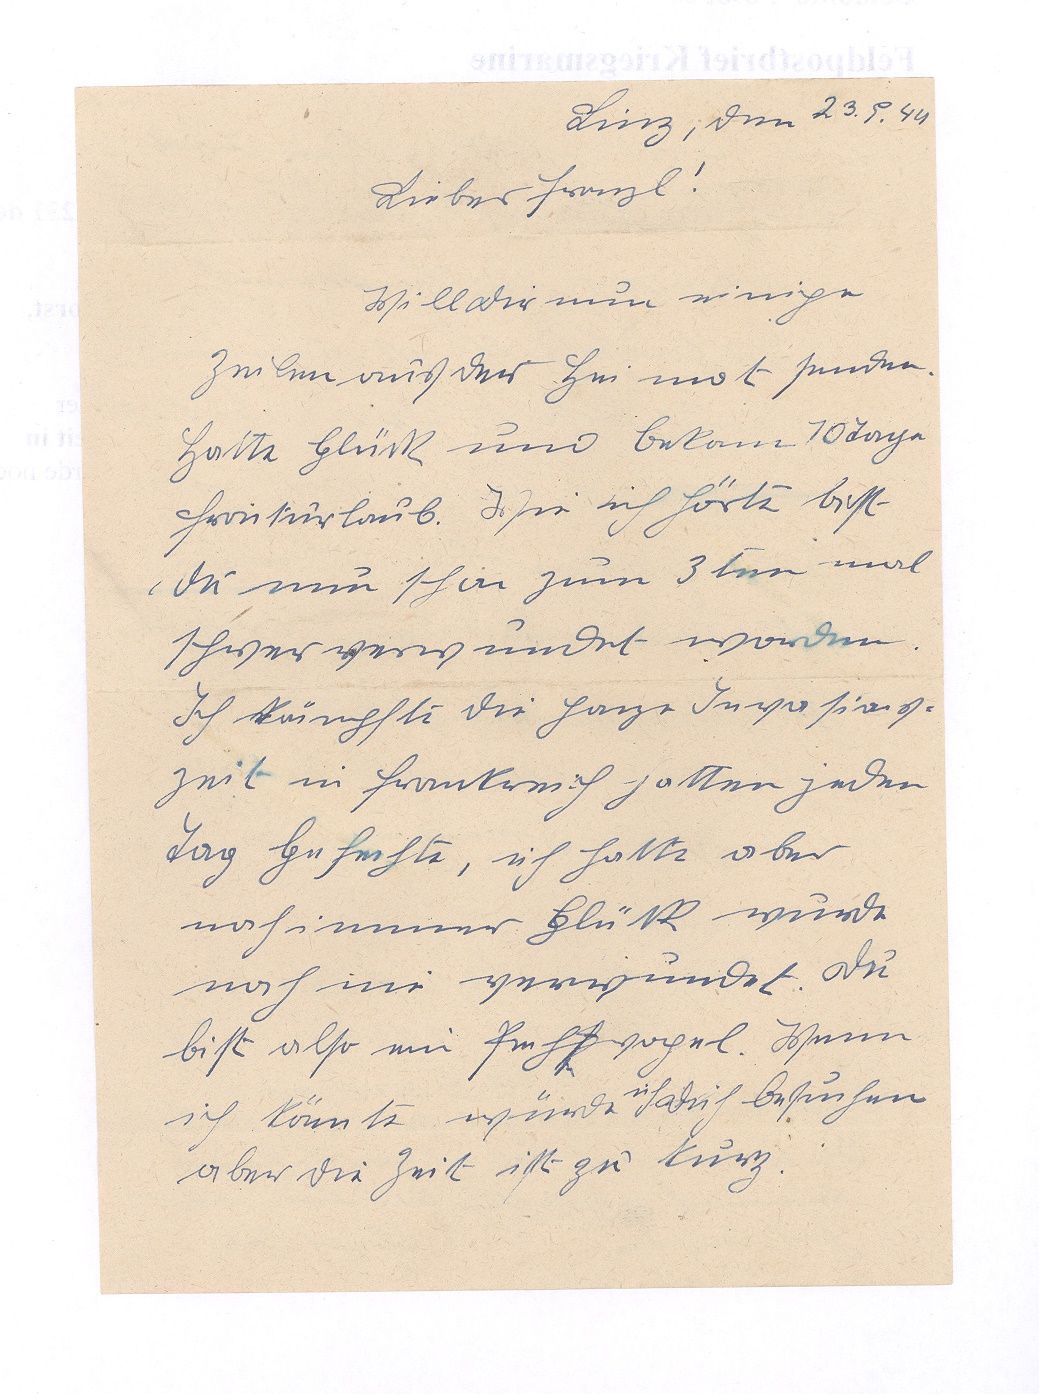 Feldpostbrief Kriegsmarine
Linz, den 23.9.44
Lieber Franzl!
Will dir nun einige
Zeilen aus der Heimat senden.
Hatte Glück und bekam 10 Tage
Fronturlaub. Wie ich hörte bist
du nun schon zum 3ten mal
schwer verwundet worden.
Ich kämpfte die ganze Invasions=
zeit in Frankreich hatten jeden
Tag Gefechte, ich hatte aber
noch immer Glück wurde
noch nie verwundet. Du
bist also ein Pechvogel. Wenn
ich könnte würde ich dich besuchen
aber die Zeit ist zu kurz.